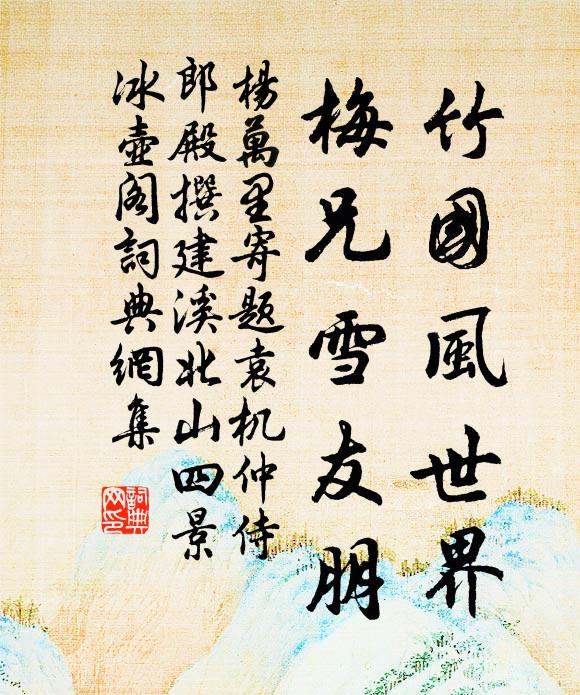 竹國風世界
梅兄雪友朋
楊萬里寄題袁机仲侍
郎殿撰建溪北山四景
冰壺閣詞典網集
詞典
网印